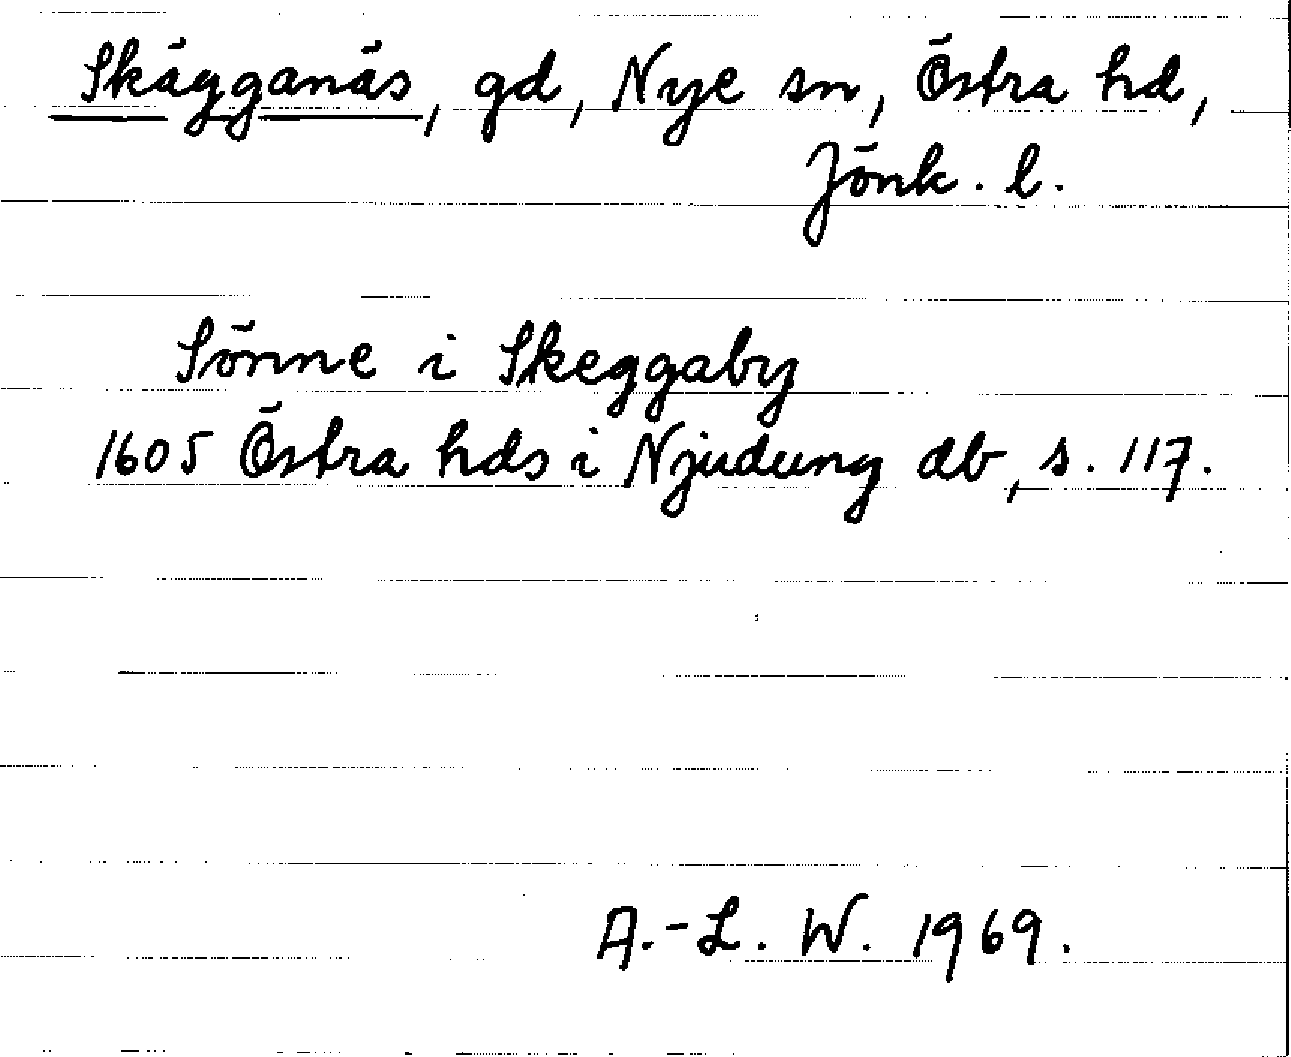 Skägganäs, gd, Nye sn, Östra hd,
Jönk. l.
Sönne i Skeggaby
1605 Östra hds i Njudung db, s. 117.
A.-L. W. 1969.